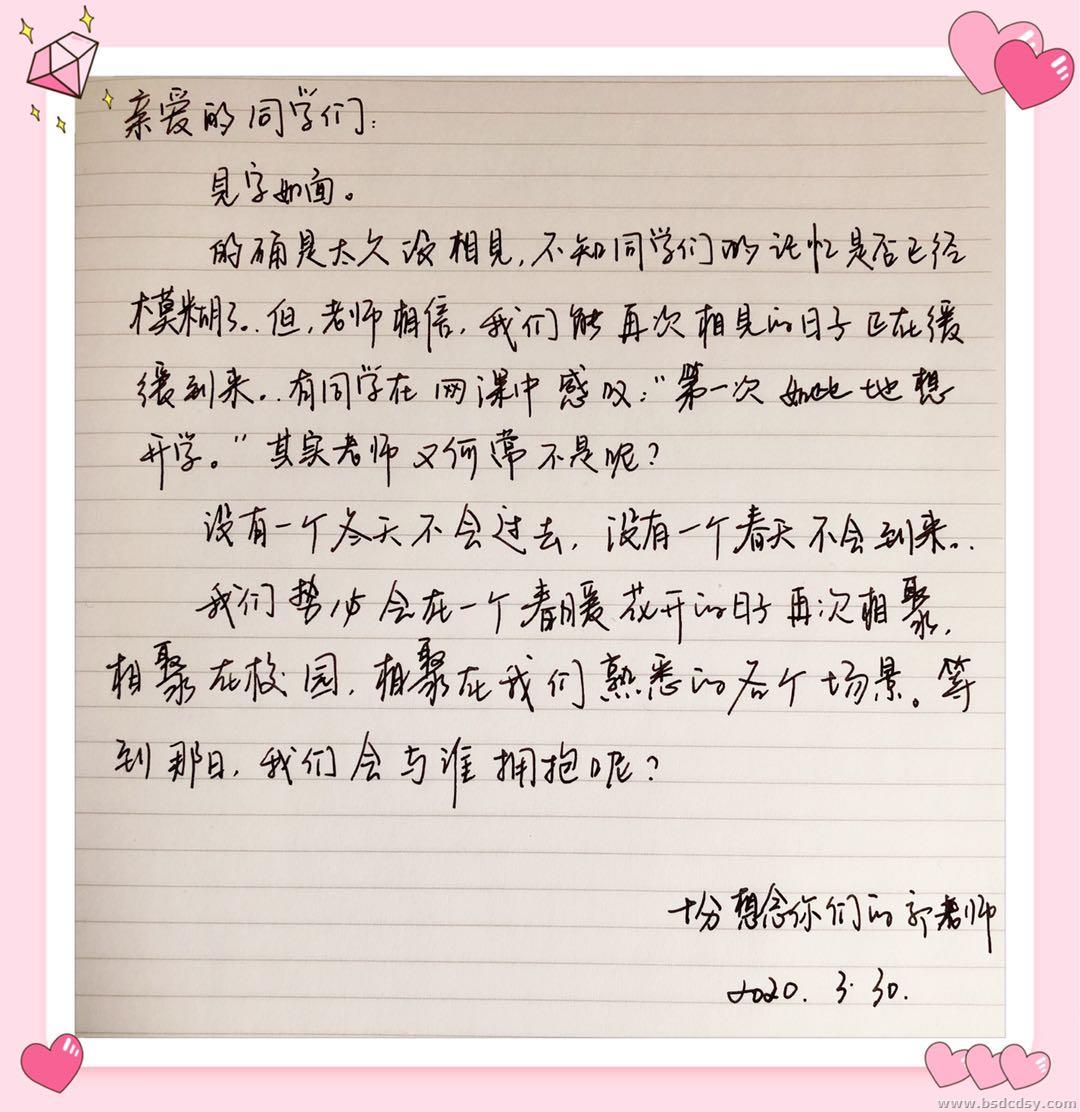 亲爱的同学们:
見字如面。
的确是太久没相見,不知同学们的记忆是否已经
模糊了。但,老师相信,我们能再次相見的日子正在缓
缓到来。有同学在网课中感叹:"第一次如此地想
开学。"其实老师又何常不是呢?
没有一个冬天不会过去,没有一个春天不会到来。
我们势必会在一个春暖花开的日子再次相聚,
相聚在校园,相聚在我们熟悉的各个场景。等
到那日,我们会与谁拥抱呢?
十分想念你们的郭老师
2020.3.30.
www.bsdcdsy.com